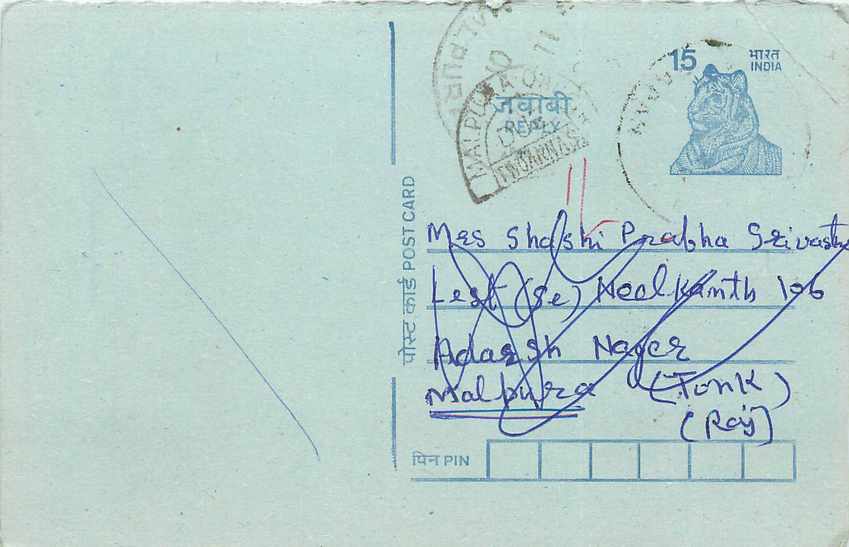 15
भारत
INDIA
जवाबी
REPLY
पोस्ट कार्ड POST CARD
Mrs Shashi Prabha
Lest (Se) Neelkanth 106
Adarsh Nager
Malpura (Tonk)
(Raj)
पिन PIN